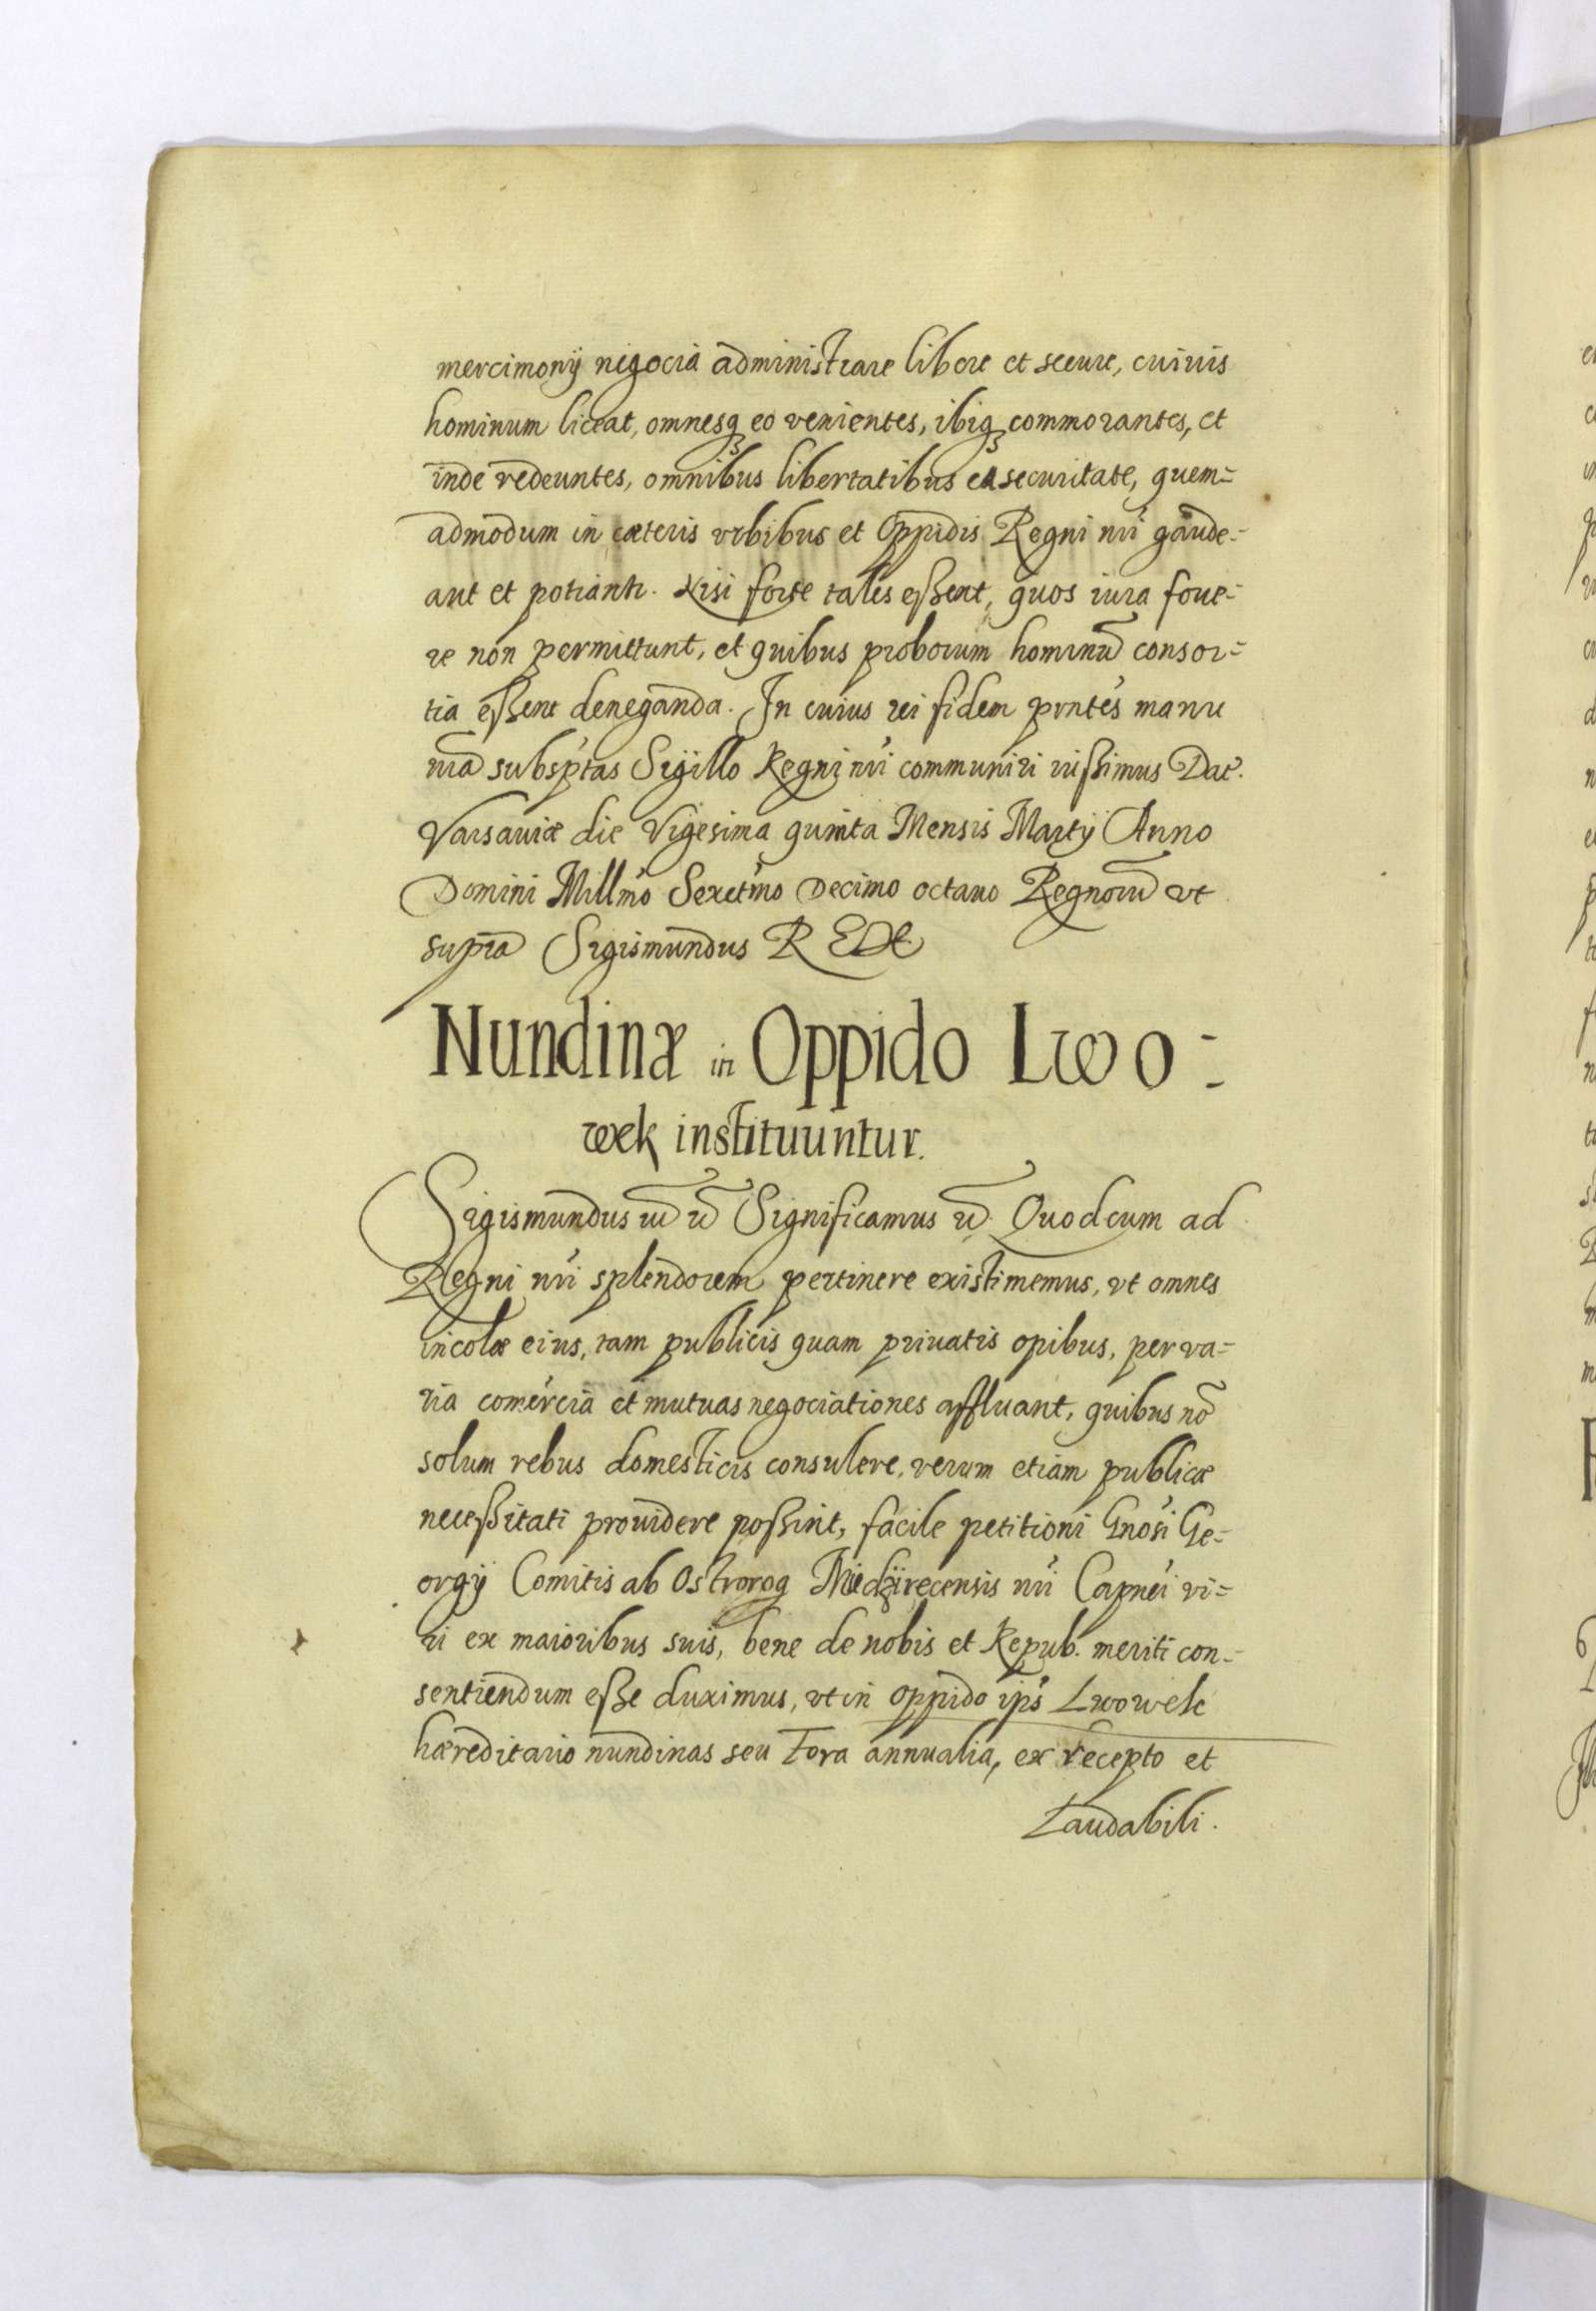 mercimonÿ negocia administrare libere et secure, cuiuis
hominum liceat, omnesqꝫ eo venientes, ibiqꝫ commorantes, et
inde redeuntes, omnibus libertatibus ea securitate, quem=
admodum in cæteris vrbibus et Oppidis Regni nri gaude=
ant et potiantr. Nisi forte tales eßent, quos iura foue=
re non permittunt, et quibus proborum hominũ consor=
tia eßent deneganda. In cuius rei fidem pntes manu
nra subsptas Sigillo Regni nri communiri iußimus Dat.
Varsauiæ die Vigesima quinta Mensis Martÿ Anno
Domini Millmo Sexctmo Decimo octauo Regnorũ vt
supra Sigismundus R
Nundinæ in Oppido Lwo=
wek instituuntur.
Sigismundus Significamus Quod cum ad
Regni nri splendorem pertinere existimemus, vt omnes
incolæ eius, tam publicis quam priuatis opibus, per va=
ria comercia et mutuas negociationes affluant, quibus nõ
solum rebus domesticis consulere, verum etiam publicæ
neceßitati prouidere poßint, facile petitioni Gnosi Ge=
orgÿ Comitis ab Ostrorog Miedzirecensis nri Capnei vi=
ri ex maioribus suis, bene de nobis et Repub. meriti con=
sentiendum eße duximus, vt in oppido ips Lwowek
hæreditario nundinas seu Fora annualia, ex recepto et
Laudabili.